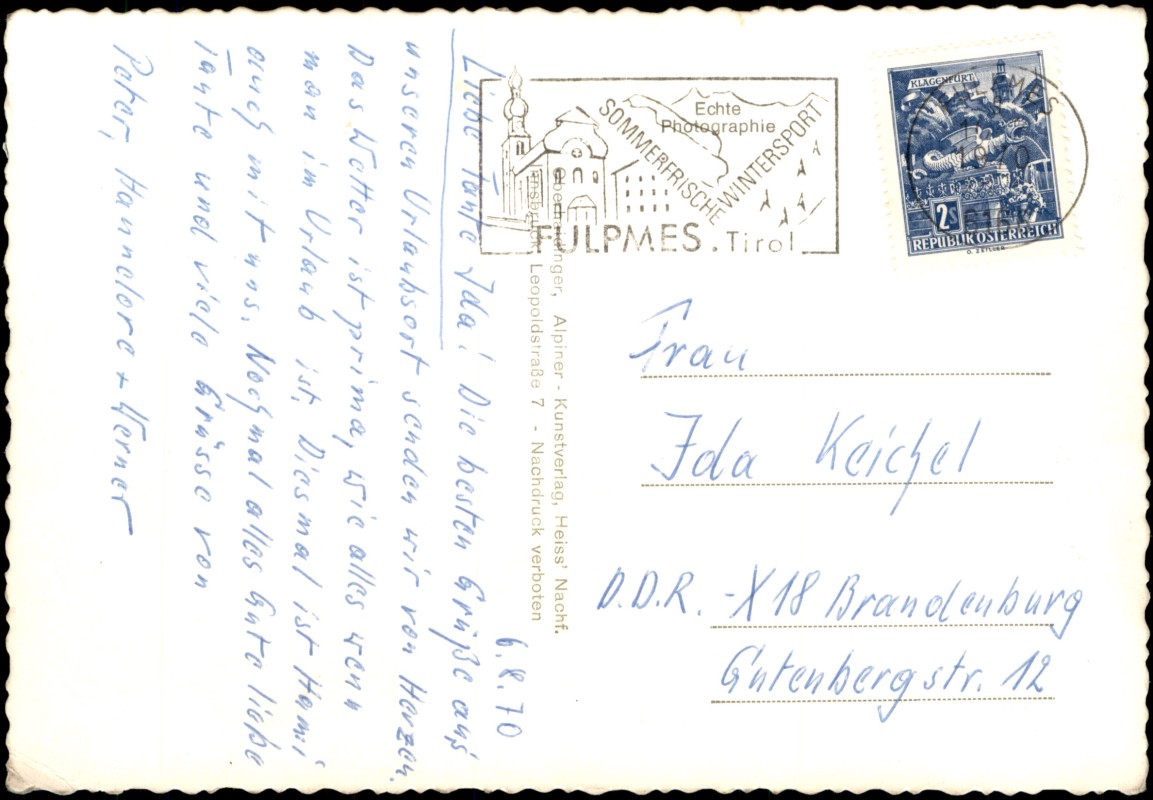 6.8.70
Liebe Tante Ida! Die besten Grüße aus
unseren Urlaubsort senden wir von Herzen.
Das Wetter ist prima, wie alles wenn
man im Urlaub ist. Diesmal ist Hanni
auch mit uns. Nochmal alles Gute liebe
Tante und viele Grüsse von
Peter, Hannelore + Werner
Alpiner - Kunstverlag, Heiss' Nachf.
Innsbruck, Leopoldstraße 7 - Nachdruck verboten
Echte
Photographie
SOMMERFRISCHE
WINTERSPORT
FULPMES. Tirol
KLAGENFURT
2S
REPUBLIK ÖSTERREICH
Frau
Ida Keichel
D.D.R. - X18 Brandenburg
Gutenbergstr. 12